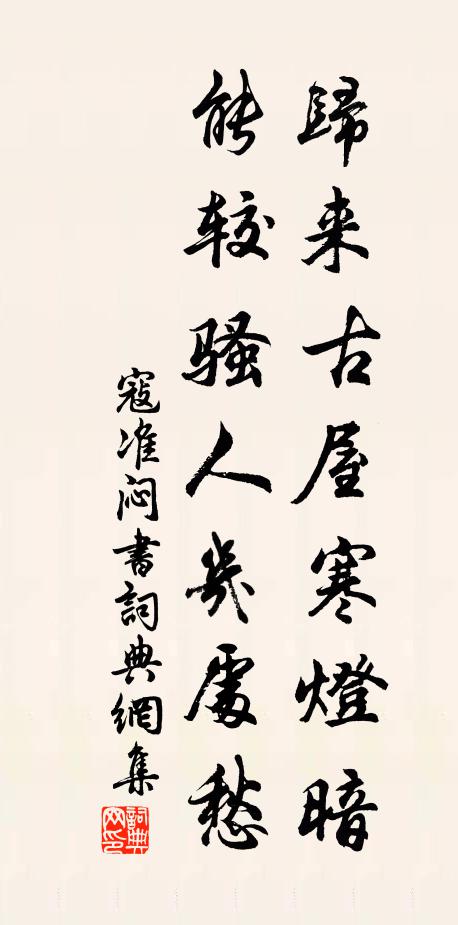 歸来古屋寒燈暗
能较骚人幾處愁
寇准闷書詞典網集
詞典网印